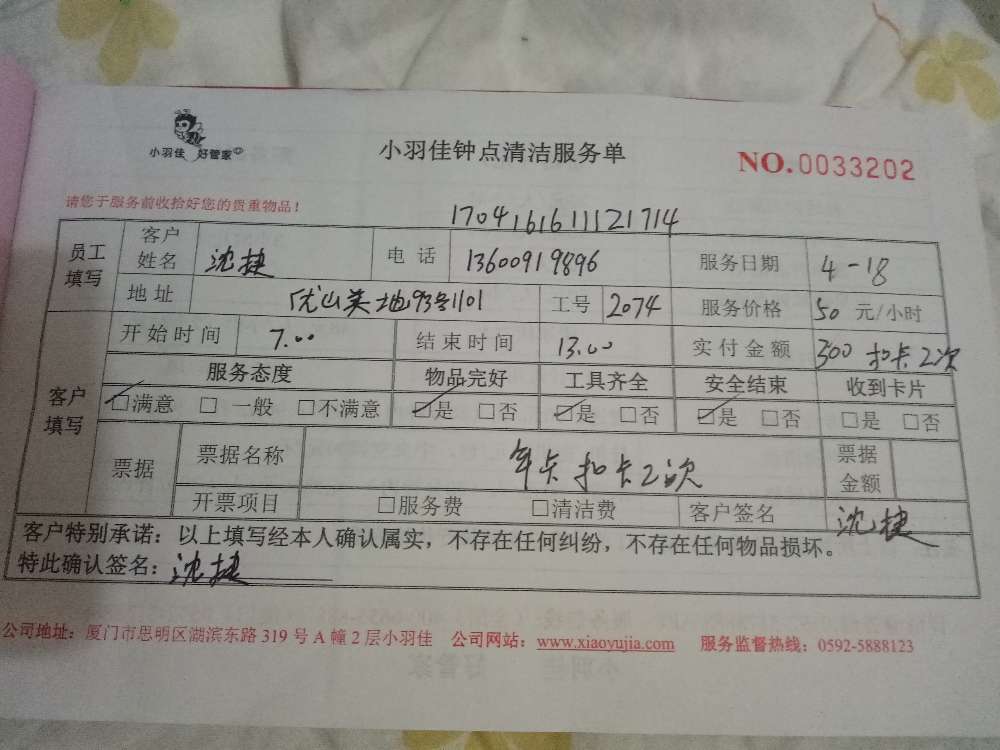 小羽佳 好管家
小羽佳钟点清洁服务单
NO.0033202
请您于服务前收拾好您的贵重物品！
1704161611121714
员工填写 客户姓名 沈捷 电话 13600919896 服务日期 4-18
地址 优山美地93号1101 工号 2074 服务价格 50 元/小时
客户填写 开始时间 7.00 结束时间 13.00 实付金额 300 扣卡2次
服务态度 物品完好 工具齐全 安全结束 收到卡片
☑满意 □一般 □不满意 ☑是 □否 ☑是 □否 ☑是 □否 □是 □否
票据 票据名称 年卡扣卡2次 票据金额
开票项目 □服务费 □清洁费 客户签名 沈捷
客户特别承诺：以上填写经本人确认属实，不存在任何纠纷，不存在任何物品损坏。
特此确认签名：沈捷
公司地址：厦门市思明区湖滨东路 319 号 A 幢 2 层小羽佳 公司网站：www.xiaoyujia.com 服务监督热线：0592-5888123